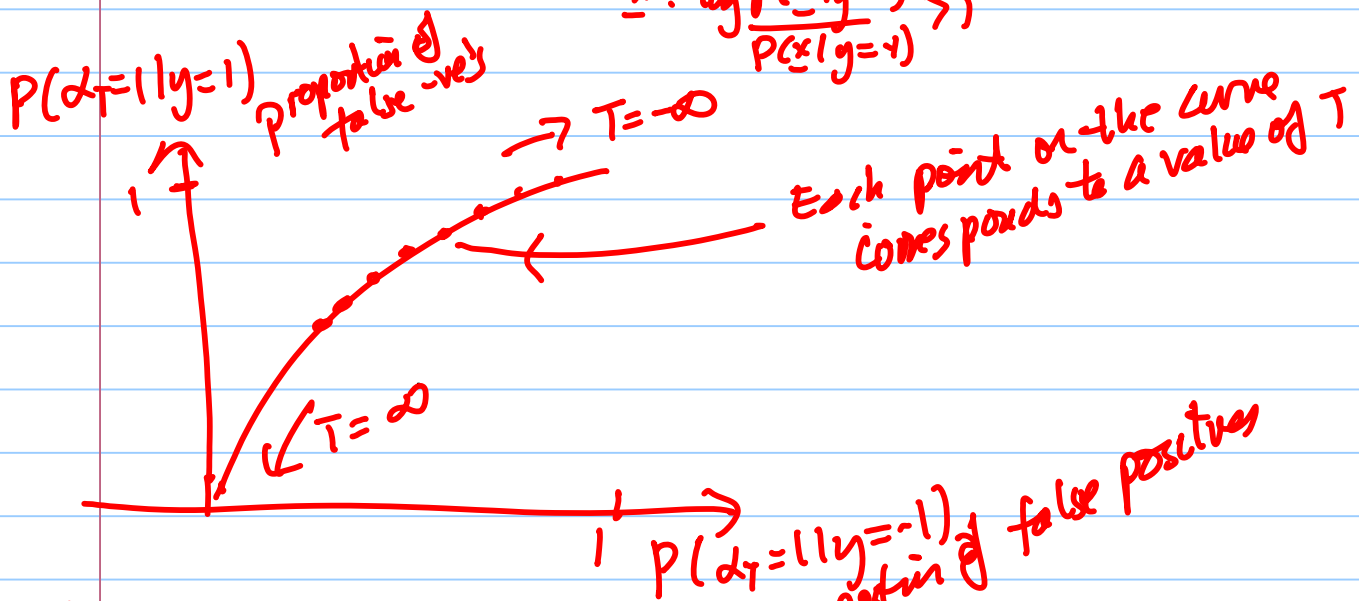 P(x|y=-1)
P(α_T=1|y=1) proportion of
false -ve's
1
T=-∞
Each point on the curve
corresponds to a value of T
T=∞
1
P(α_T=1|y=-1)
of false positives